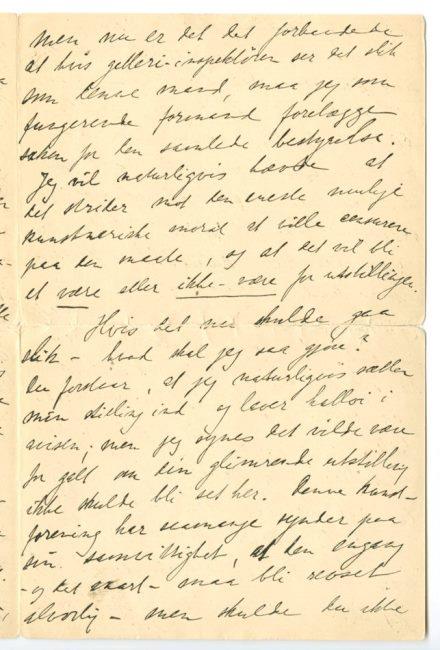 men nu er det det forbandede
at hvis galleri-inspektören ser det slik
som denne mand, maa jeg som
fungerende formand forelægge
saken for den samlede bestyrelse.
Jeg vil naturligvis hævde at
det strider mot den eneste mulige
kunstneriske moral at ville censurere
paa den maate, og at det vil bli
et være eller ikke-være for utstillingen.
Hvis det nu skulde gaa
slik – hvad skal jeg saa gjøre?
Du forstaar, at jeg naturligvis sætter
min stilling ind og laver halloi i
avisen; men jeg synes det vilde være
for galt om din glimrende utstilling
ikke skulde bli set her. Denne Kunst-
forening har saamange synder paa
sin samvittighet, at den engang
– og det snart – maa bli revset
alvorlig – men skulde du ikke